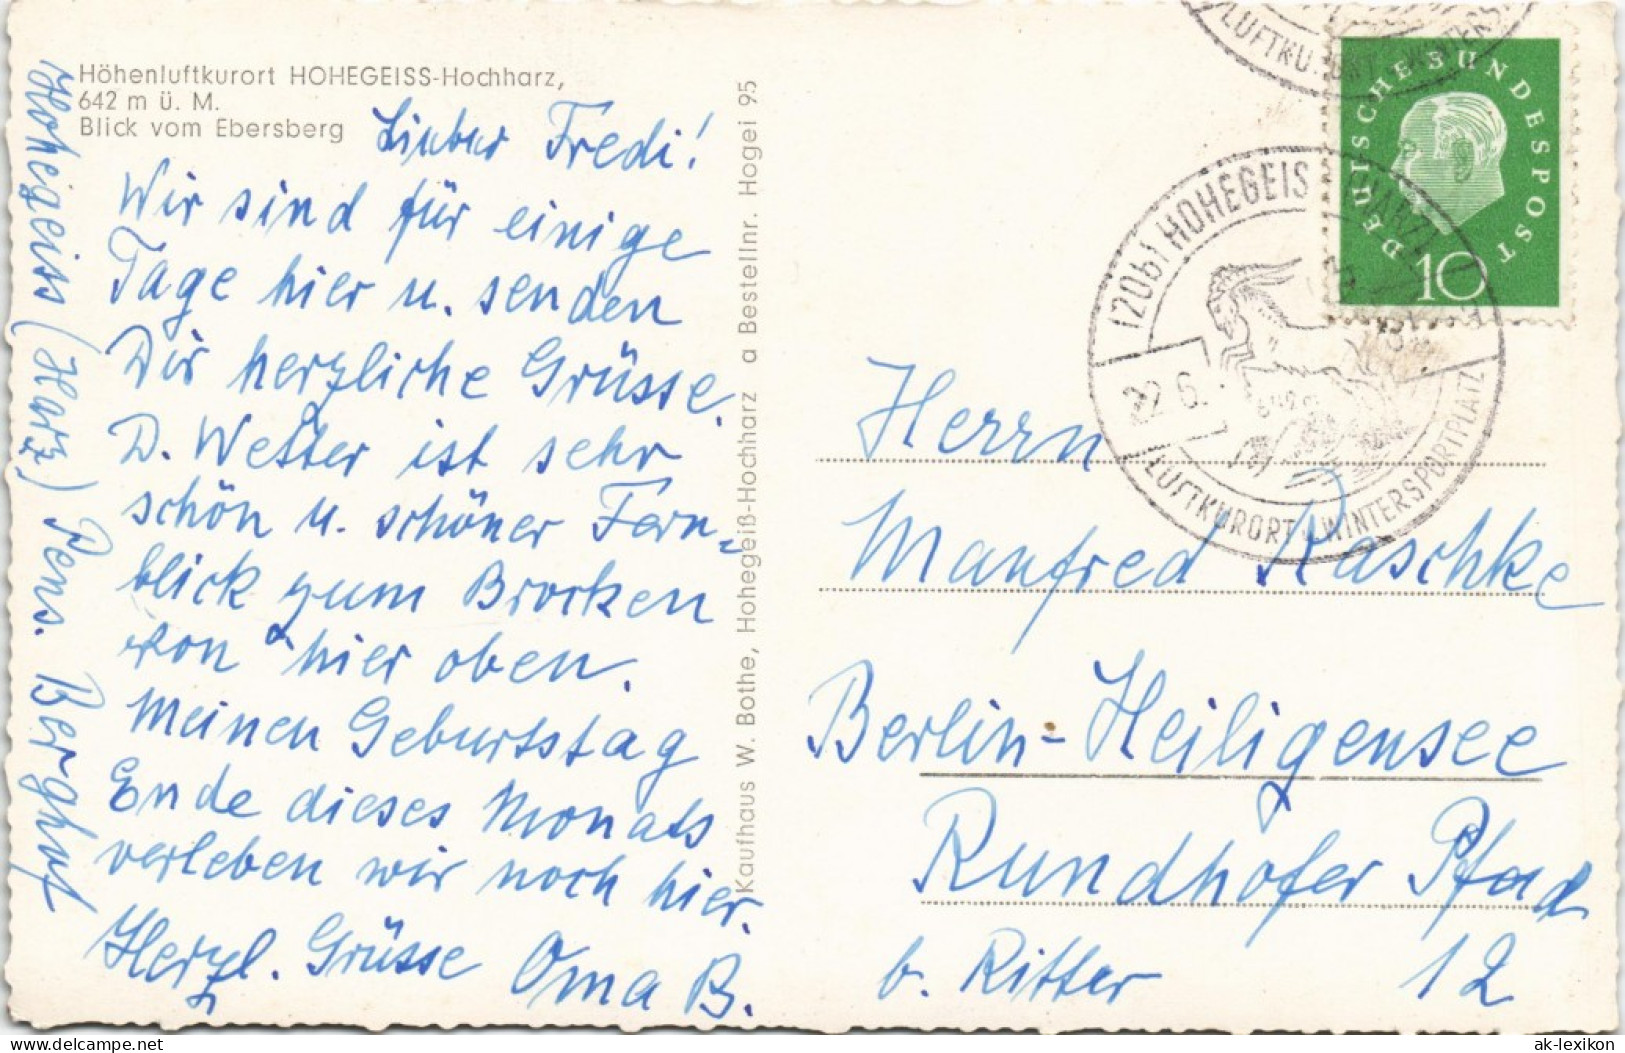 Höhenluftkurort HOHEGEISS-Hochharz,
642 m ü. M.
Blick vom Ebersberg
Lieber Fredi!
Wir sind für einige
Tage hier u. senden
Dir herzliche Grüsse.
D. Wetter ist sehr
schön u. schöner Fern-
blick zum Brocken
von hier oben.
Meinen Geburtstag
Ende dieses Monats
verleben wir noch hier.
Herzl. Grüsse Oma B.
Hohegeiss (Harz) Pens. Berghof
Kaufhaus W. Bothe, Hohegeiß-Hochharz a Bestellnr. Hogei 95
LUFTKURORT WINTERS
DEUTSCHE BUNDESPOST
10
(20b) HOHEGEISS (HARZ)
22.6.
642 m
LUFTKURORT u. WINTERSPORTPLATZ
Herrn
Manfred Raschke
Berlin-Heiligensee
Rundhofer Pfad
b. Ritter 12
delcampe.net
ak-lexikon